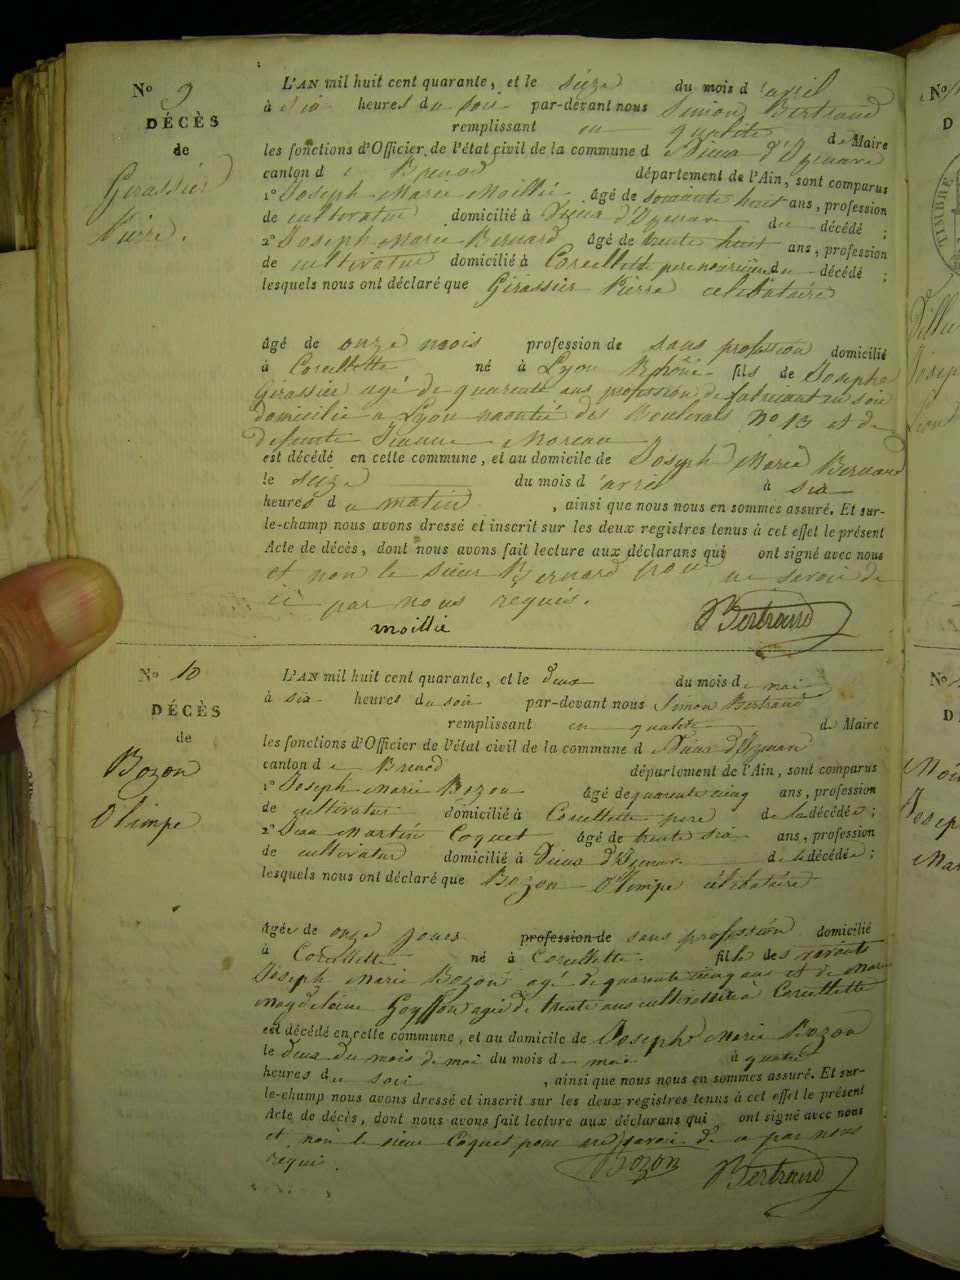 N° 9
DÉCÈS
de
Girassier
Pierre.
L'AN mil huit cent quarante, et le sieze du mois d'avril
à six heures du soir par-devant nous Simon Bertrand
remplissant en qualité de Maire
les fonctions d'Officier de l'état civil de la commune d Vieux d'Izenave
canton d e Brenod département de l'Ain, sont comparus
1° Joseph Marie Moillié âgé de soixante huit ans, profession
de cultivateur domicilié à Vieux d'Izenave du décédé ;
2° Joseph Marie Bernard âgé de trente huit ans, profession
de cultivateur domicilié à Corcellette pere nourricier du décédé ;
lesquels nous ont déclaré que Girassier Pierre celibataire
âgé de onze mois profession de sans profession domicilié
à Corcellette né à Lyon Rhône fils de Josephe
Girassier agé de quarente ans profession de fabricant en soie
domicilié a Lyon montié des N° 13 et de
defunte Jeanne Moreau
est décédé en cette commune, et au domicile de Joseph Marie Bernard
le seize du mois d'avril à six
heures d u matin , ainsi que nous nous en sommes assuré. Et sur-
le-champ nous avons dressé et inscrit sur les deux registres tenus à cet effet le présent
Acte de décès, dont nous avons fait lecture aux déclarans qui ont signé avec nous
et non le sieur Bernard pour ne savoir de
ce par nous requis.
moillié Bertrand
N° 10
DÉCÈS
de
Bozon
Olimpe
L'AN mil huit cent quarante, et le deux du mois de mai
à six heures du soir par-devant nous Simon Bertrand
remplissant en qualité de Maire
les fonctions d'Officier de l'état civil de la commune d Vieux d'Izenave
canton d e Brenod département de l'Ain, sont comparus
1° Joseph Marie Bozon âgé de quarente cinq ans, profession
de cultivateur domicilié à Corcellette pere de la décédée ;
2° Jean Martin Coquet âgé de trente six ans, profession
de cultivateur domicilié à Vieux d'Izenave de la décédée ;
lesquels nous ont déclaré que Bozon Olimpe célibataire
âgée de onze jours profession de sans profession domicilié
à Corcellette né à Corcellette fille des vivants
Joseph Marie Bozon agé de quarente cinq ans et de Marie
Magdeleine Goyffon agée de trente ans cultivateur à Corcellette
est décédé en cette commune, et au domicile de Joseph Marie Bozon
le deux du mois de mai du mois de mai à quatre
heures du soir , ainsi que nous nous en sommes assuré. Et sur-
le-champ nous avons dressé et inscrit sur les deux registres tenus à cet effet le présent
Acte de décès, dont nous avons fait lecture aux déclarans qui ont signé avec nous
et non le sieur Coquet pour ne savoir de ce par nous
requi.
Bozon Bertrand
N°
D
TIMBRE
Joseph
N°
D
Joseph